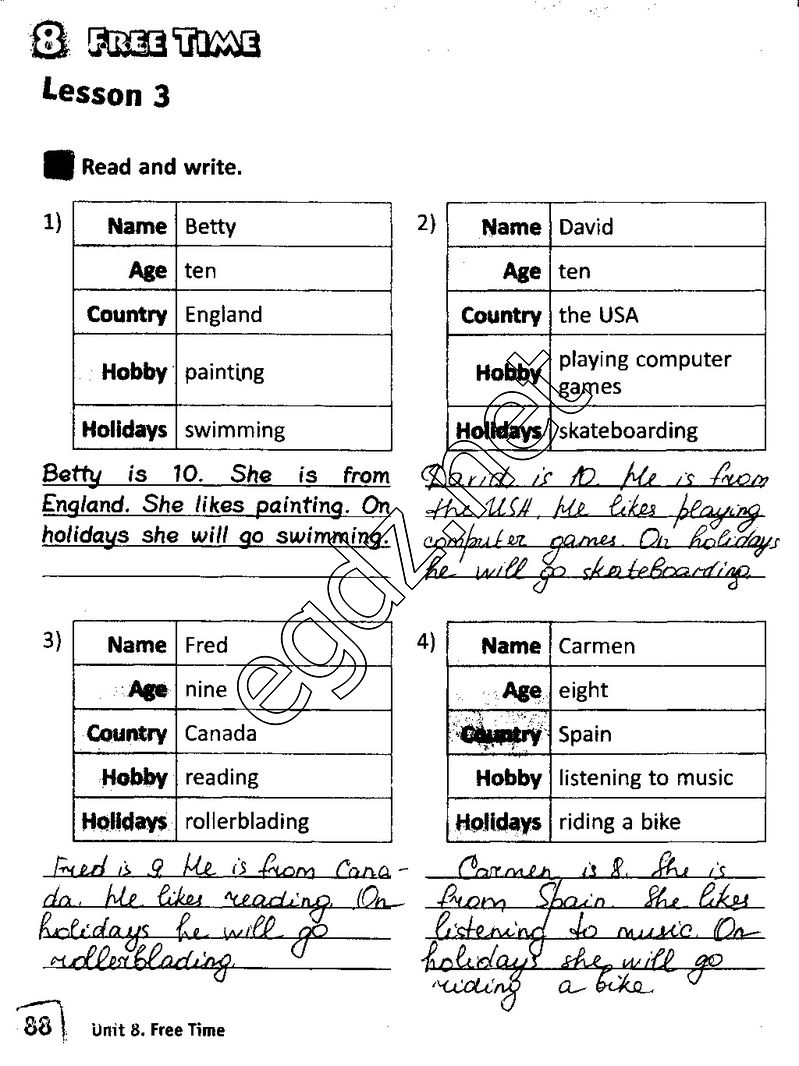 8 FREE TIME
Lesson 3
Read and write.
1)
Name Betty
Age ten
Country England
Hobby painting
Holidays swimming
Betty is 10. She is from
England. She likes painting. On
holidays she will go swimming.
2)
Name David
Age ten
Country the USA
Hobby playing computer
games
Holidays skateboarding
David is 10. He is from
the USA. He likes playing
computer games. On holidays
he will go skateboarding.
3)
Name Fred
Age nine
Country Canada
Hobby reading
Holidays rollerblading
Fred is 9. He is from Cana-
da. He likes reading. On
holidays he will go
rollerblading.
4)
Name Carmen
Age eight
Country Spain
Hobby listening to music
Holidays riding a bike
Carmen is 8. She is
from Spain. She likes
listening to music. On
holidays she will go
riding a bike.
egdz.net
88 Unit 8. Free Time